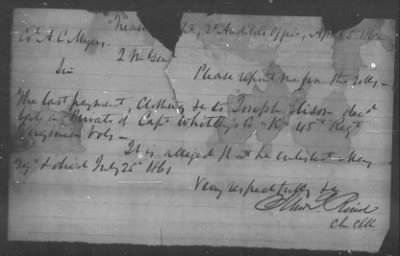 Treasury Dept, 2d Auditor's Office, April 5 186
Col A. C. Myers
2 M Genl
Sir
Please report me from the rolls
The last payment, Clothing &c to Joseph decd
late a Private of Capt Whitley's Co "K" 45" Regt
Virginia Vols
It is alleged that he enlisted May
29" & died July 25" 1861
Very respectfully &c
Ch Clk